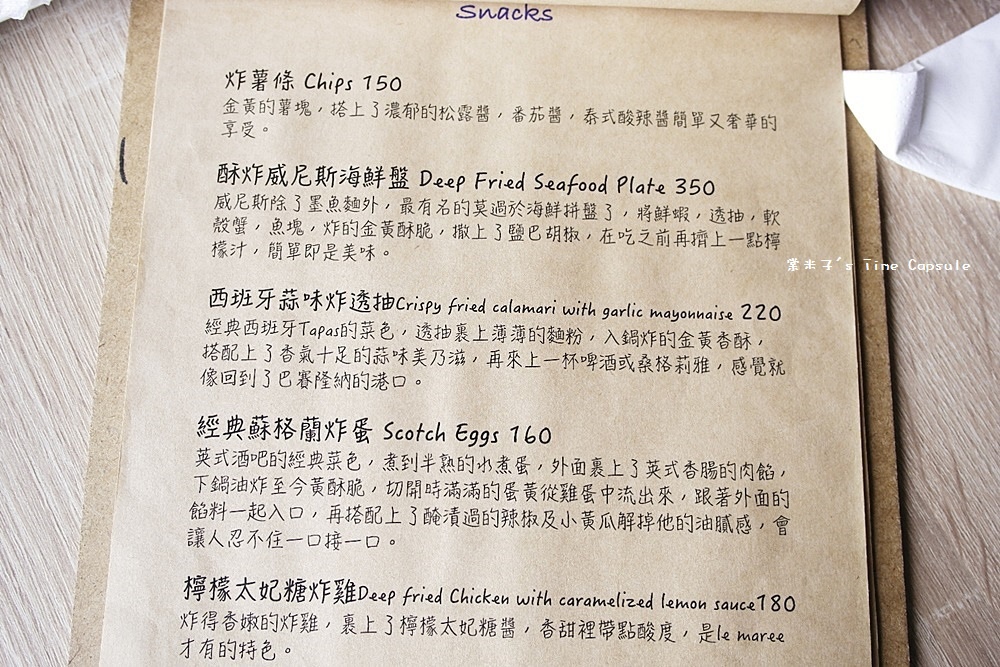 Snacks
炸薯條 Chips 150
金黃的薯塊，搭上了濃郁的松露醬，番茄醬，泰式酸辣醬簡單又奢華的
享受。
酥炸威尼斯海鮮盤 Deep Fried Seafood Plate 350
威尼斯除了墨魚麵外，最有名的莫過於海鮮拼盤了，將鮮蝦，透抽，軟
殼蟹，魚塊，炸的金黃酥脆，撒上了鹽巴胡椒，在吃之前再擠上一點檸
檬汁，簡單即是美味。
葉未子's Time Capsule
西班牙蒜味炸透抽Crispy fried calamari with garlic mayonnaise 220
經典西班牙Tapas的菜色，透抽裹上薄薄的麵粉，入鍋炸的金黃香酥，
搭配上了香氣十足的蒜味美乃滋，再來上一杯啤酒或桑格莉雅，感覺就
像回到了巴賽隆納的港口。
經典蘇格蘭炸蛋 Scotch Eggs 160
英式酒吧的經典菜色，煮到半熟的水煮蛋，外面裹上了英式香腸的肉餡，
下鍋油炸至今黃酥脆，切開時滿滿的蛋黃從雞蛋中流出來，跟著外面的
餡料一起入口，再搭配上了醃漬過的辣椒及小黃瓜解掉他的油膩感，會
讓人忍不住一口接一口。
檸檬太妃糖炸雞Deep fried Chicken with caramelized lemon sauce180
炸得香嫩的炸雞，裹上了檸檬太妃糖醬，香甜裡帶點酸度，是le maree
才有的特色。